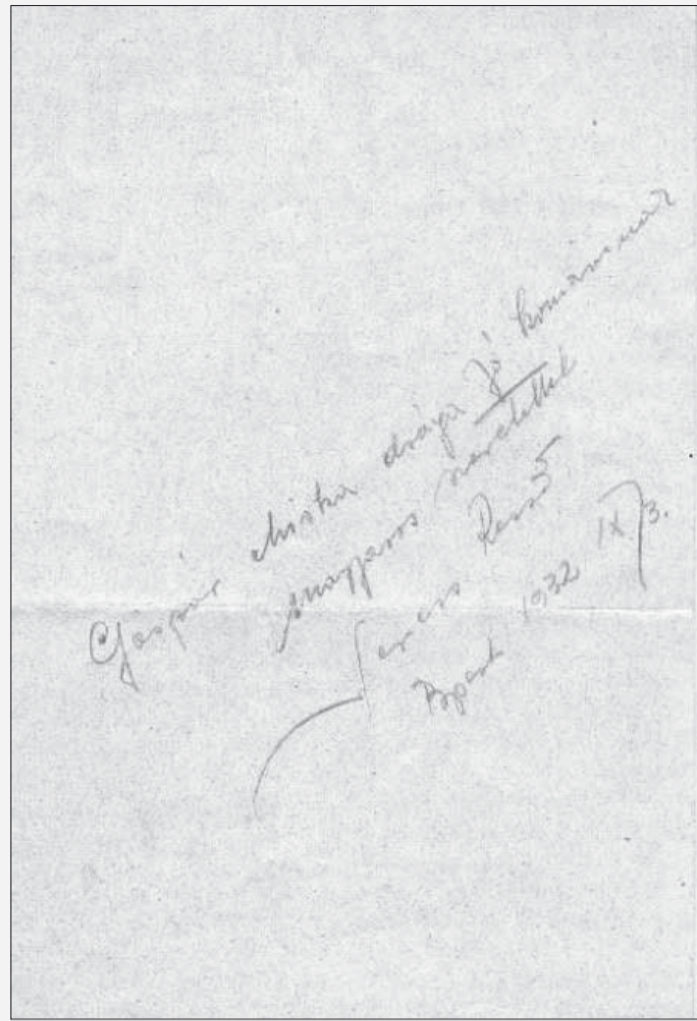 Gáspár Miska drága jó komámnak
magyaros szeretettel
Seress Rezső
Bpest 1932 IX/3.